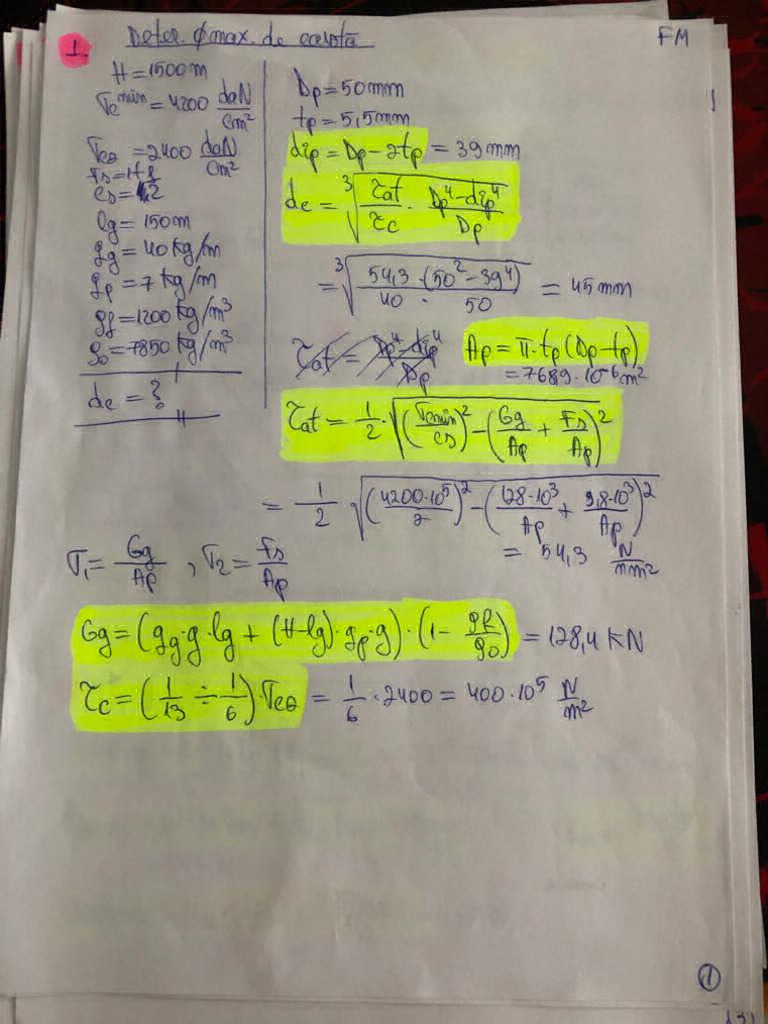 1. Deter. ϕmax. de carotă
FM
H = 1500 m
σc^min = 4200 daN/cm²
σca = 2400 daN/cm²
cs = 2
lg = 150 m
qg = 40 kg/m
qp = 7 kg/m
ρf = 1200 kg/m³
ρo = 7850 kg/m³
dc = ?
Dp = 50 mm
tp = 5,5 mm
dip = Dp - 2tp = 39 mm
dc = ∛(τat/τc · (Dp⁴ - dip⁴)/Dp)
= ∛(54,3 · (50² - 39⁴) / 40 · 50) = 45 mm
τat = (Dp⁴ - dip⁴)/Dp
Ap = π · tp (Dp - tp)
= 7689 · 10⁻⁶ m²
τat = 1/2 · √((σcmin/cs)² - (Gg/Ap + Fs/Ap)²)
= 1/2 √((4200·10⁵/2)² - (128·10³/Ap + 9,8·10³/Ap)²)
= 54,3 N/mm²
σ1 = Gg/Ap , σ2 = Fs/Ap
Gg = (qg·g·lg + (H - lg)·qp·g) · (1 - ρf/ρo) = 128,4 KN
τc = (1/13 ÷ 1/6) · σca = 1/6 · 2400 = 400 · 10⁵ N/m²
1